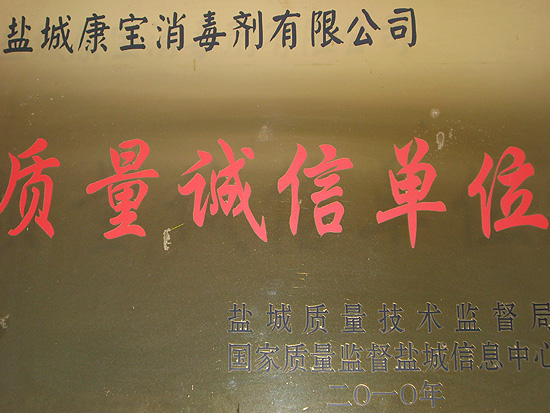 盐城康宝消毒剂有限公司
质量诚信单位
盐城质量技术监督局
国家质量监督盐城信息中心
二〇一〇年